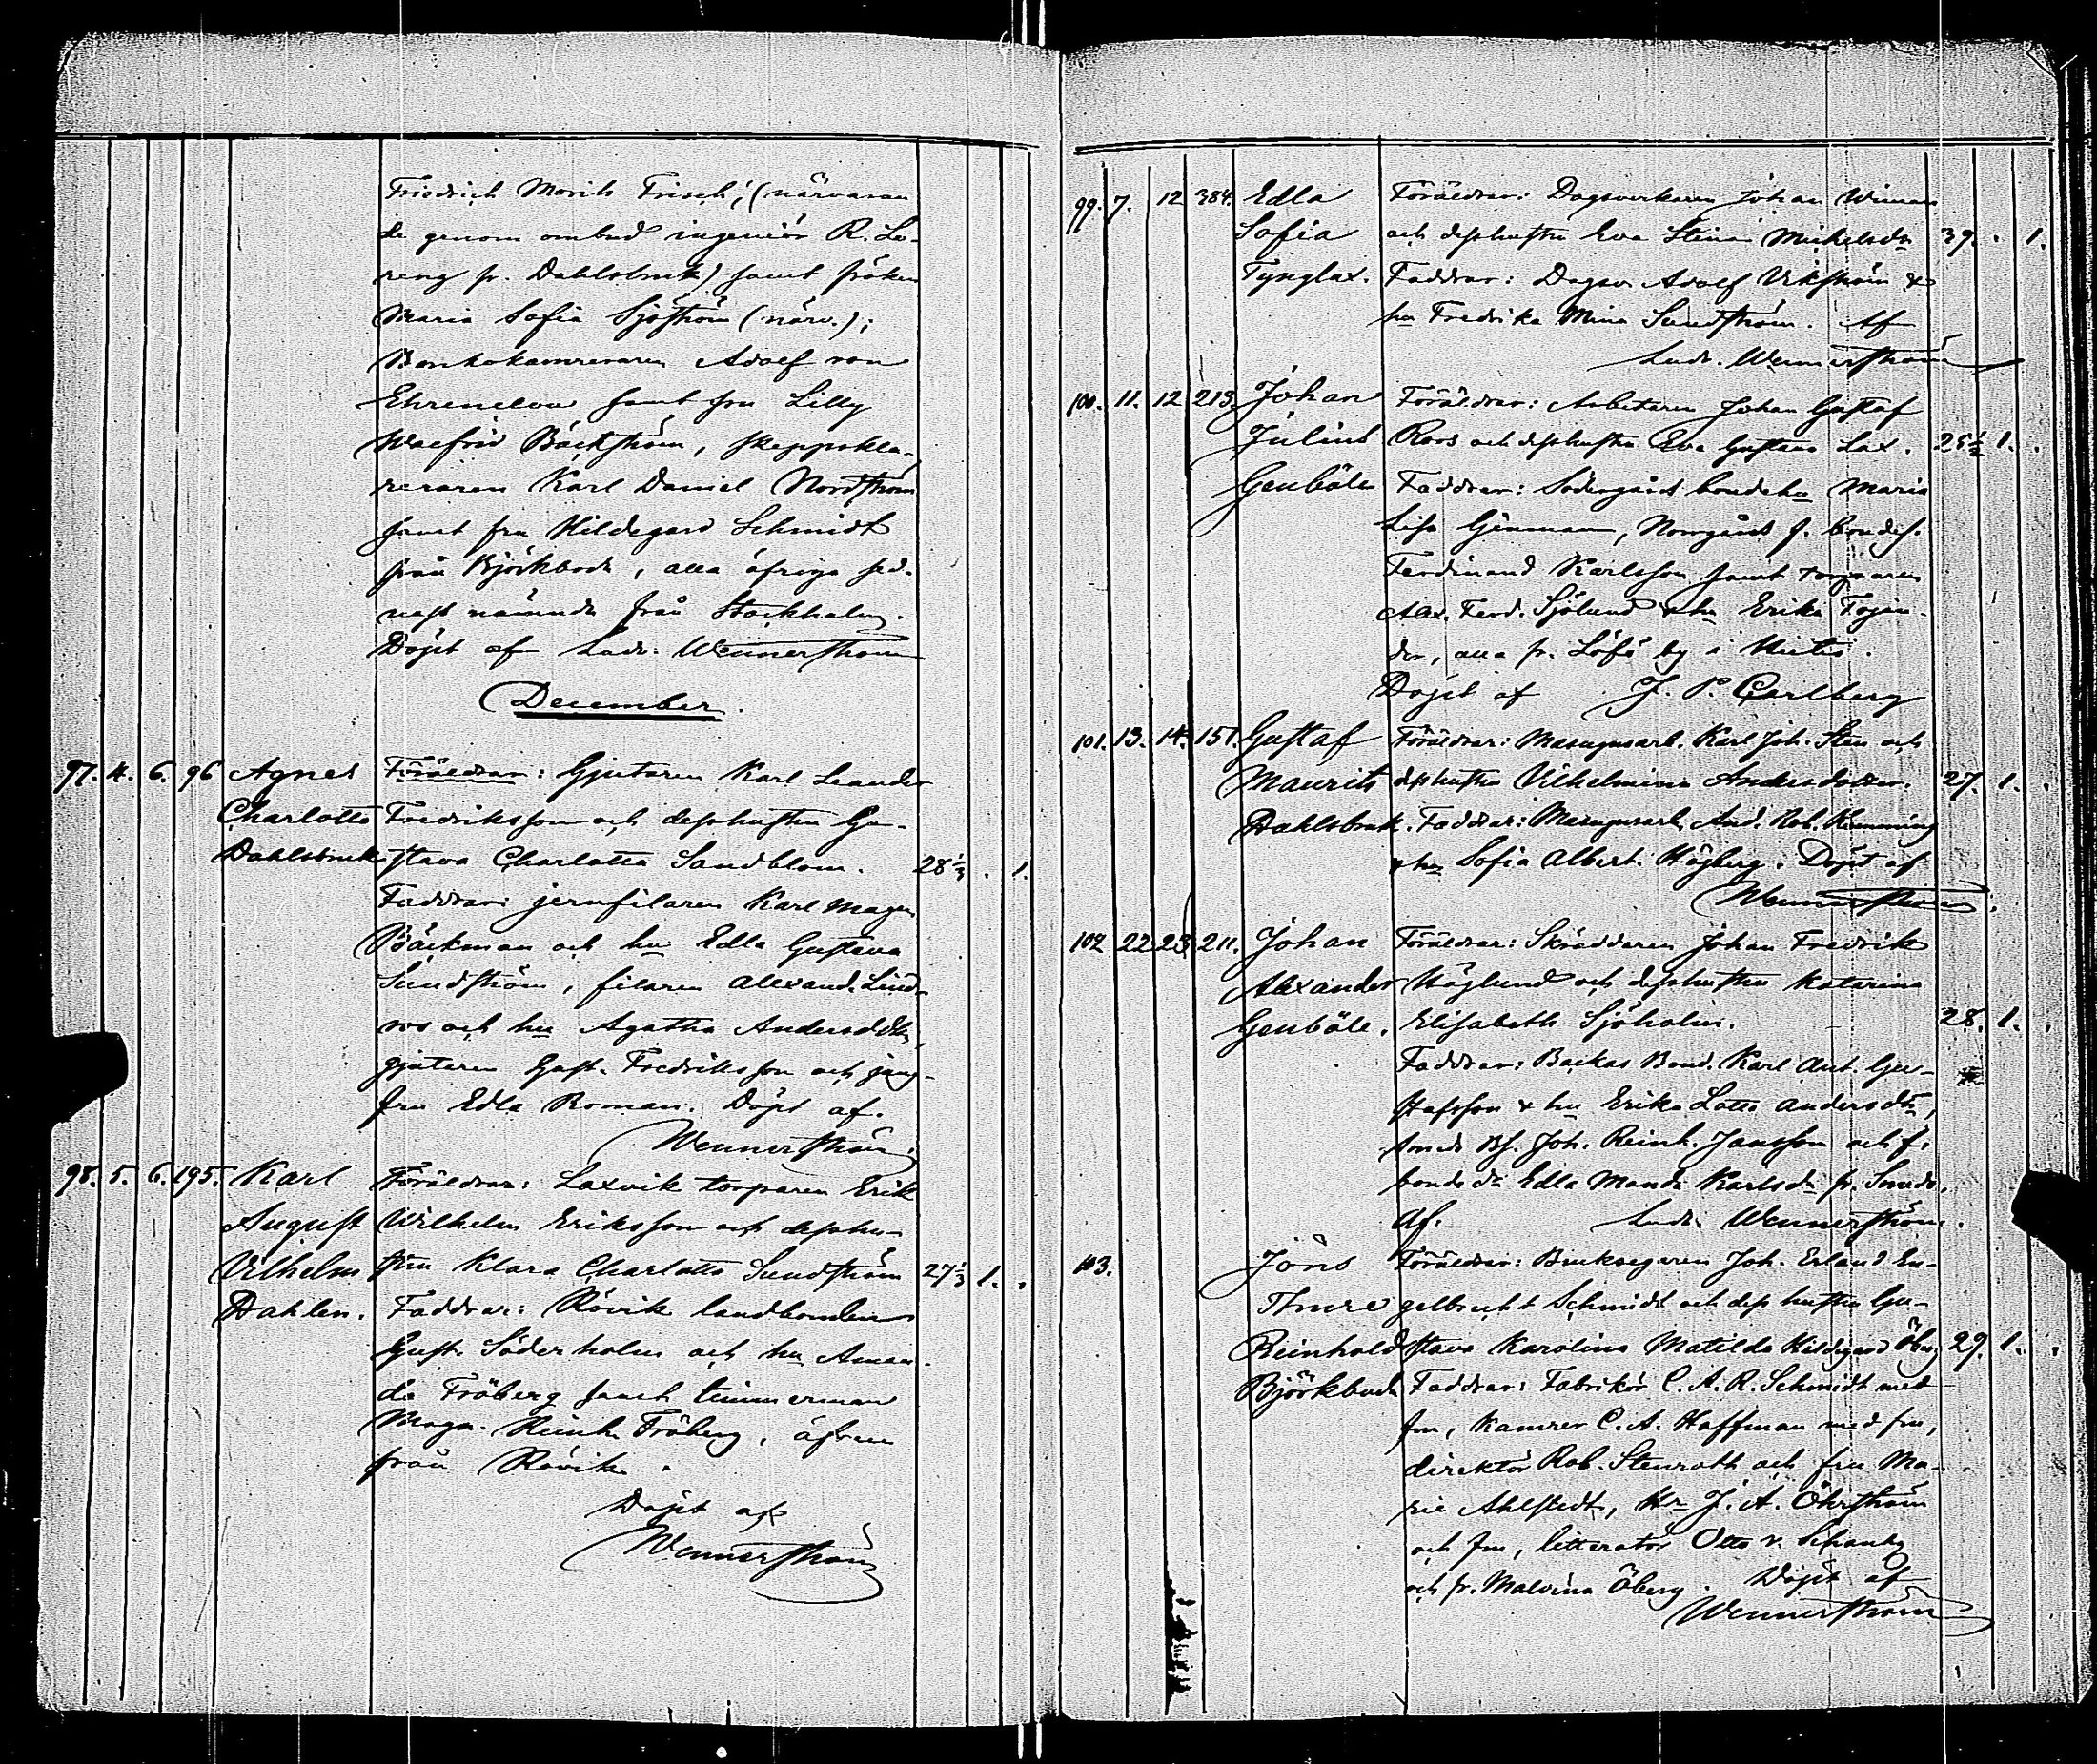 Friedrich Morits Frisch, (närvaran
de genom ombud ingeniör R. Le-
reng fr. Dahlsbruk) samt fröken
Maria Sofia Sjöström (närv.);
Bankokamreraren Adolf von
Ehrenclou samt fru Lilly
Walfrid Bäckström, skeppskla-
reraren Karl Daniel Nordström
samt fru Hildegard Schmidt
från Björkboda, alla öfriga sed-
nast nämnde från Stockholm.
Döpt af Ludv. Wennerström
December.
97. 4. 6. 96 Agnes Föräldrar: Gjutaren Karl Leander
Charlotta Fredriksson och dess hustru Gu-
Dahlsbruk stava Charlotta Sandblom. 28 1/3 . 1.
Faddrar: jernfilaren Karl Magn.
Bäckman och hu Edla Gustava
Sundström, filaren Alexand. Lind-
roos och hu Agatha Andersdtr,
gjutaren Gust. Fredriksson och jung-
fru Edla Roman. Döpt af.
Wennerström.
98. 5. 6. 195. Karl Föräldrar: Laxvik torparen Erik
August Wilhelm Eriksson och dess hu-
Vilhelm stru Klara Charlotta Sundström 27 1/3 1. .
Dahlen. Faddrar: Rövik landbonden
Gust. Söderholm och hu Aman-
da Fröberg samt timmerman
Magn. Reinh. Fröberg, äfven
från Rövik.
Döpt af
Wennerström
99. 7. 12 384. Edla Föräldrar: Dagsverkaren Johan Wiman
Sofia och dess hustru Eva Stina Mickelsdr 39. . 1.
Tynglax. Faddrar: Dagsv. Adolf Vikström &
hu Fredrika Mina Sundström. Af
Ludv. Wennerström
100. 11. 12 213. Johan Föräldrar: Arbetaren Johan Gustaf
Julius Roos och dess hustru Eva Gustava Lax. 25 1/2 1. .
Genböle Faddrar: Södergård bondehu Maria
Lisa Genman, Norrgård f. bondes.
Ferdinand Karlsson samt torparen
Alex. Ferd. Sjölund & hu Erika
alla fr. Löfö by i Hitis.
Döpt af J. P. Carlberg
101. 13. 14. 151. Gustaf Föräldrar: Masugnsarb. Karl Joh. Sten och
Maurits dess hustru Vilhelmina Andersdotter. 27. 1. .
Dahlsbruk. Faddrar: Masugnsarb. And. Rob. Kumming
& hu Sofia Albert. Högberg. Döpt af
Wennerström.
102 22 23 211. Johan Föräldrar: Skräddaren Johan Fredrik
Alexander Höglund och dess hustru Katarina
Genböle. Elisabeth Sjöholm. 28. 1. .
Faddrar: Backas Bond. Karl Ant. Gu-
stafsson & hu Erika Lotta Andersdtr,
Joh. Reinh. Jansson och f.
bonde dr Edla Manda Karlsdr fr.
Af. Ludv. Wennerström.
103. Jöns Föräldrar: Bruksegaren Joh. Erland En-
Thure gelbrecht Schmidt och dess hustru Gu-
Reinhold stava Karolina Matilda Hildegard Öberg 29. 1. .
Björkboda Faddrar: Fabrikör C. A. R. Schmidt med
fru, Kamrer C. A. Hoffman med fru,
direktör Rob. Stenroth och fru Ma-
rie Ahlstedt, Hr J. A. Öhrström
och fru, litteratör Otto v. Schantz
och fr. Malvina Öberg. Döpt af
Wennerström